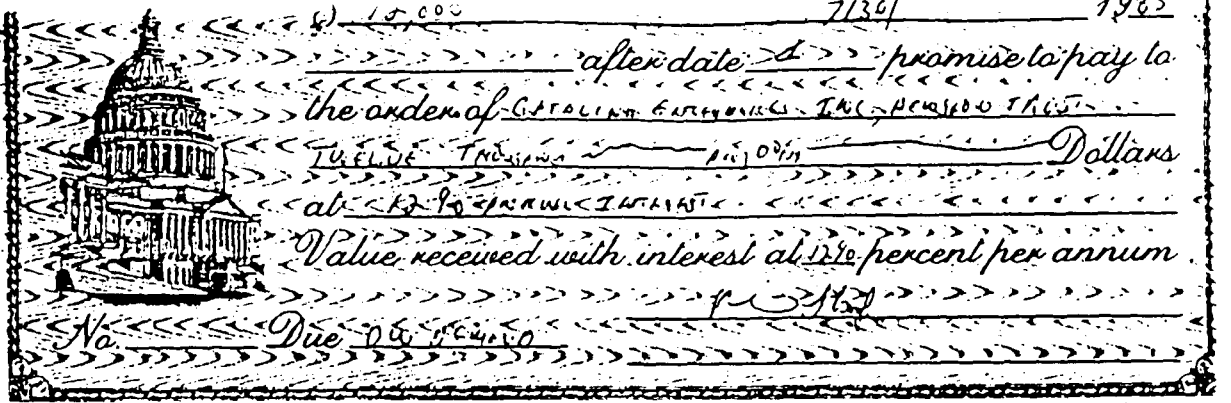 $) 15,000 7/30/ 19
after date I promise to pay to
the order of CATALINA ENTERPRISES INC, PENSION TRUST
TWELVE THOUSAND Dollars
at 12 % ANNUAL INTEREST
Value received with interest at 12% percent per annum
No. Due ON DEMAND